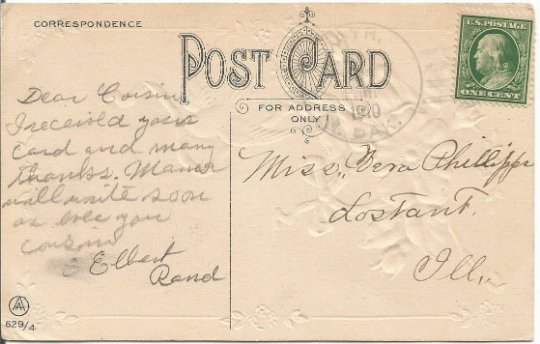 CORRESPONDENCE
POST CARD
FOR ADDRESS
ONLY
U.S. POSTAGE
ONE CENT
1910
DAK.
Dear Cousin
I received your
card and many
thanks. Mama
will write soon
as ever you
cousin
Elbert
Rand
Miss, Vera Phillipps
Lostant.
Ill.
AA
629/4